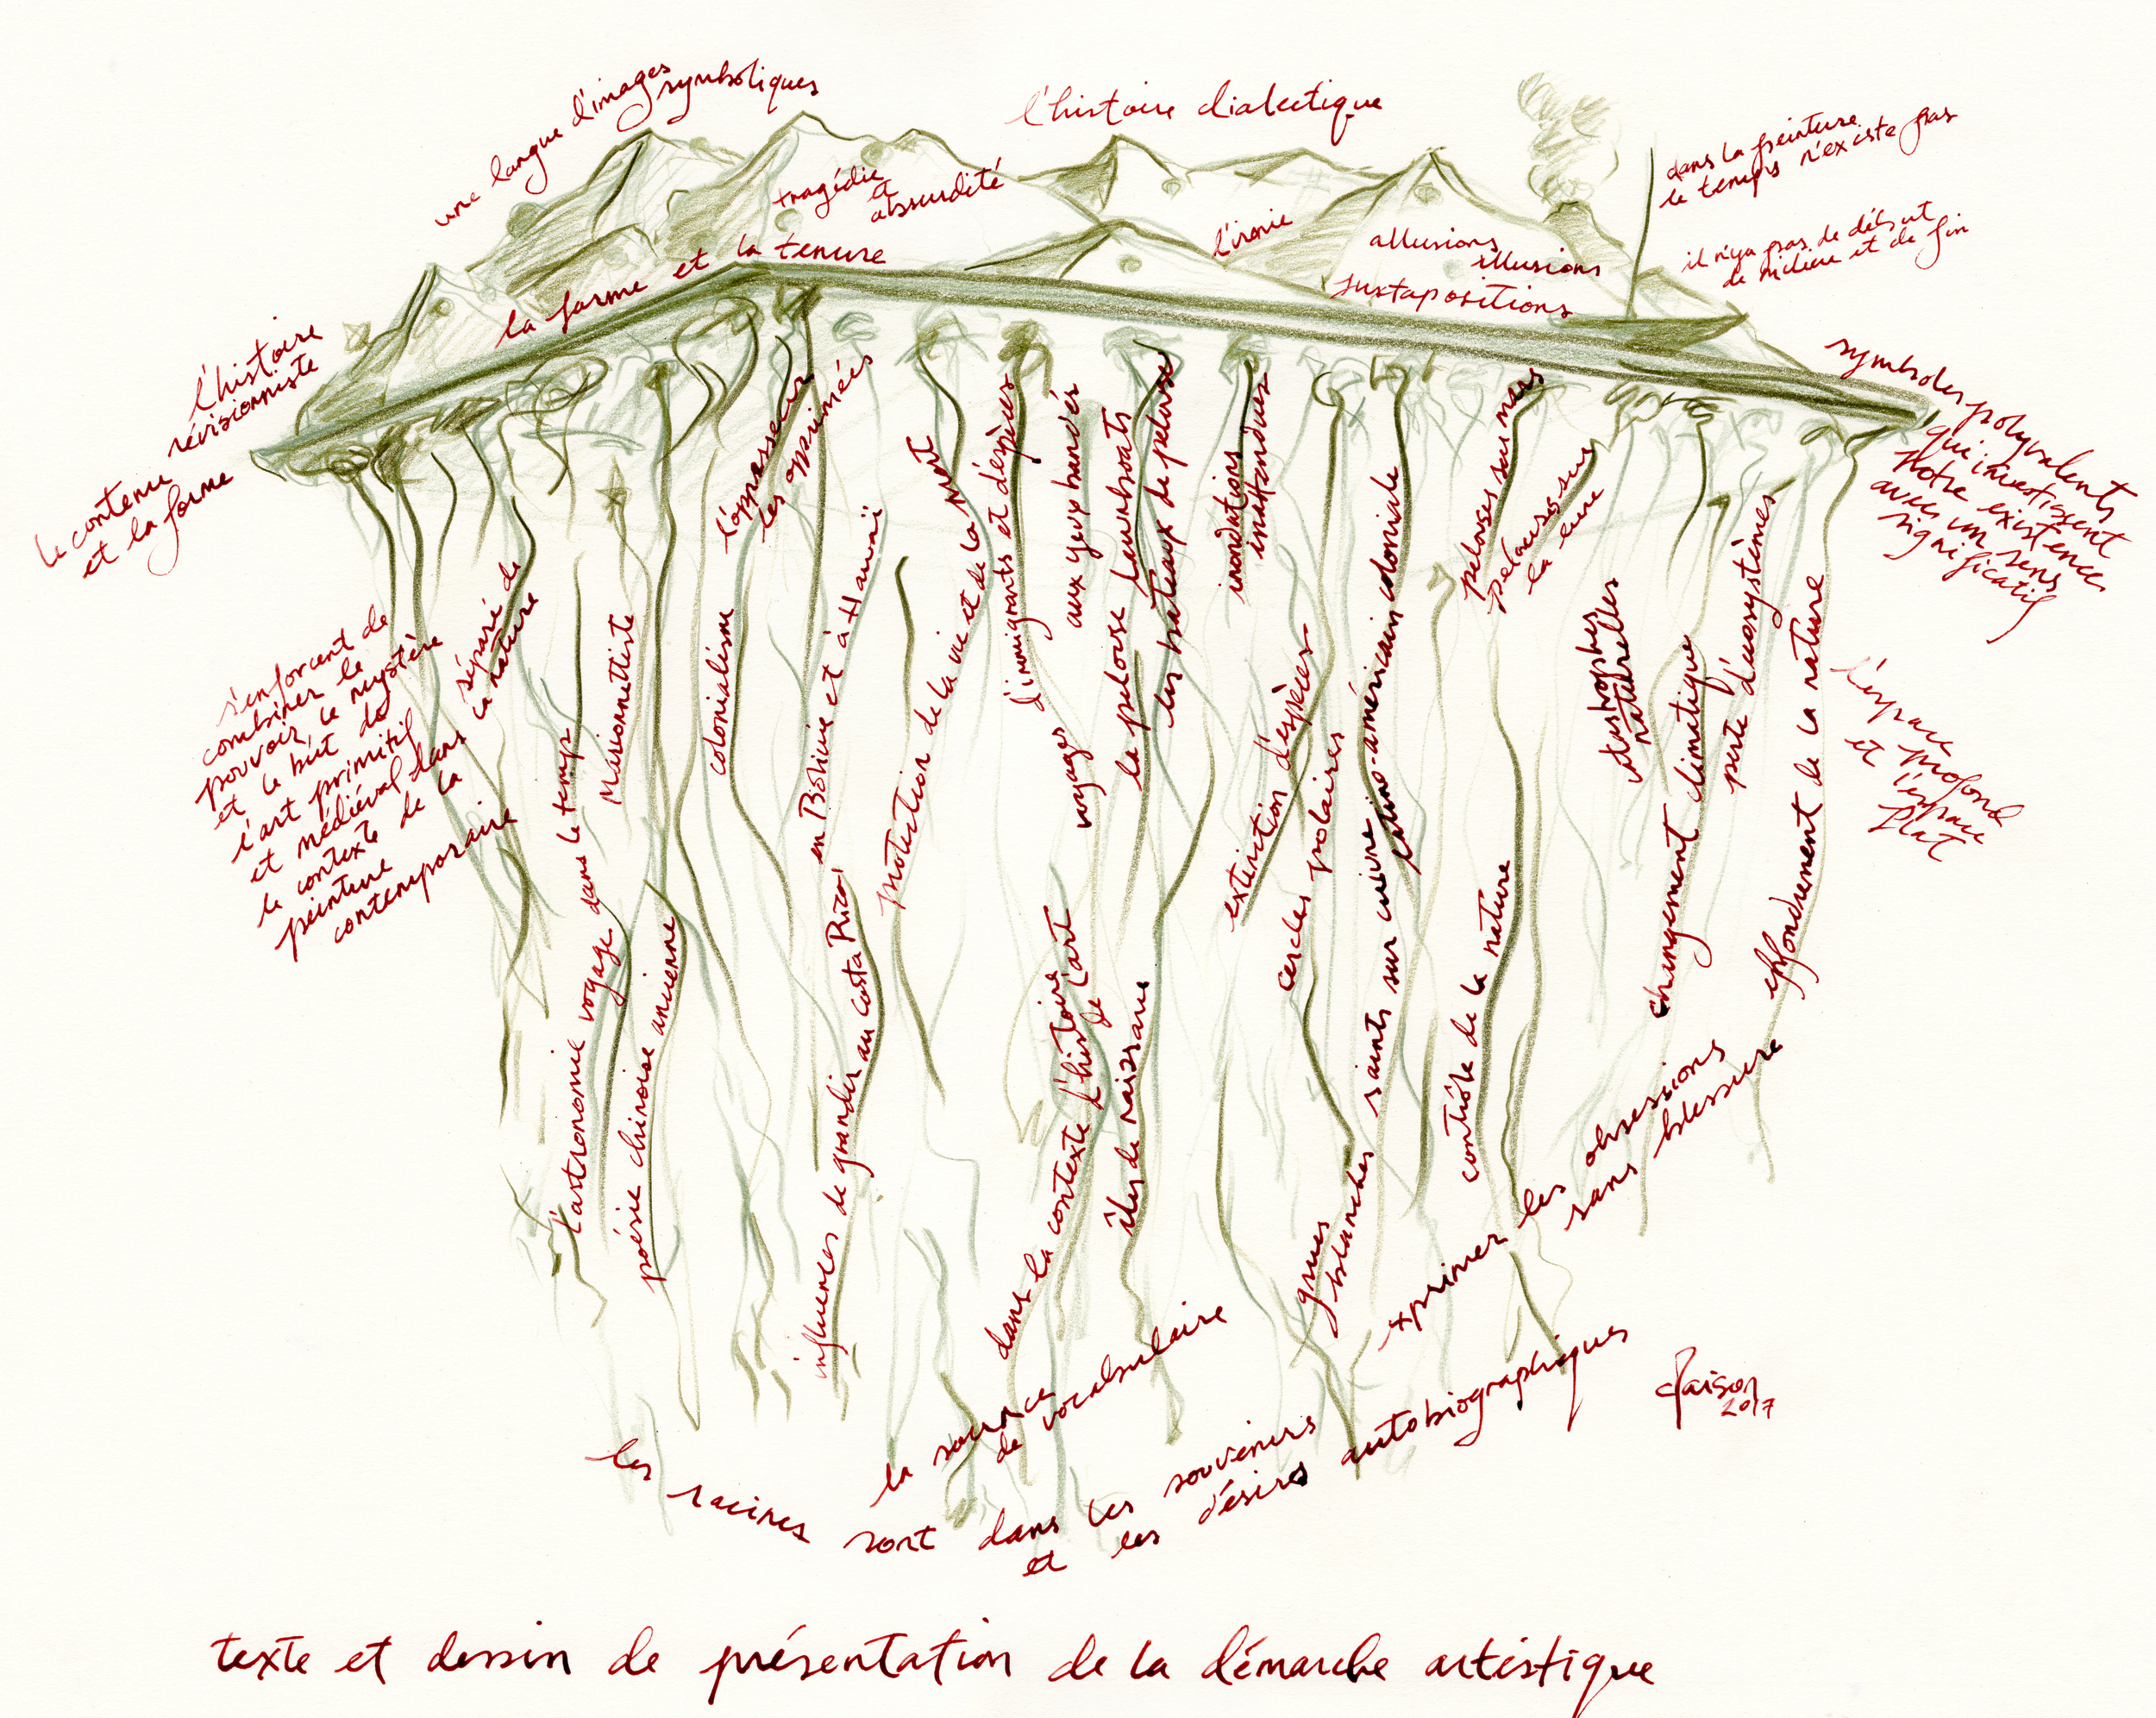 une langue d'images
symboliques
l'histoire dialectique
dans la peinture
le temps n'existe pas
il n'ya pas de début
de milieu et de fin
tragédie
et
absurdité
l'ironie
allusions
illusions
juxtapositions
la forme et la tenure
l'histoire
révisionniste
le contenu
et la forme
symboles polyvalents
qui investissent
notre existence
avec un sens
significatif
s'enforcent de
combiner le
pouvoir le mystère
et le bût de
l'art primitif
et médiéval dans
le contexte de la
peinture
contemporaine
séparé de
la nature
l'astronomie voyage dans le temp
Marionnettiste
poésie chinoise ancienne
colonialism
l'oppresseur
les opprimées
influences de grandir au Costa Rica
en Bolivie et à Hawaï
protection de la vie et de la mort
d'immigrants et d'espèces
aux yeux bandés
voyages
dans la contexte d'histoire
de l'art
la pelouse
les bateaux de pelouse
îles de naissance
inondations
inattendues
extinction d'espèces
cercles polaires
grues
blanches
saints sur cuivre
latino-américain coloniale
pelouses sur mars
pelouses sur
la lune
contrôle de la nature
catastrophes
naturelles
changement climatique
perte d'écosystèmes
effondrement de la nature
l'espace profond
et l'espace
flat
exprimer les obsessions
sans blessure
la source
de vocabulaire
les racines sont dans les souvenirs
et les désires autobiographiques
2017
texte et dessin de présentation de la démarche artistique